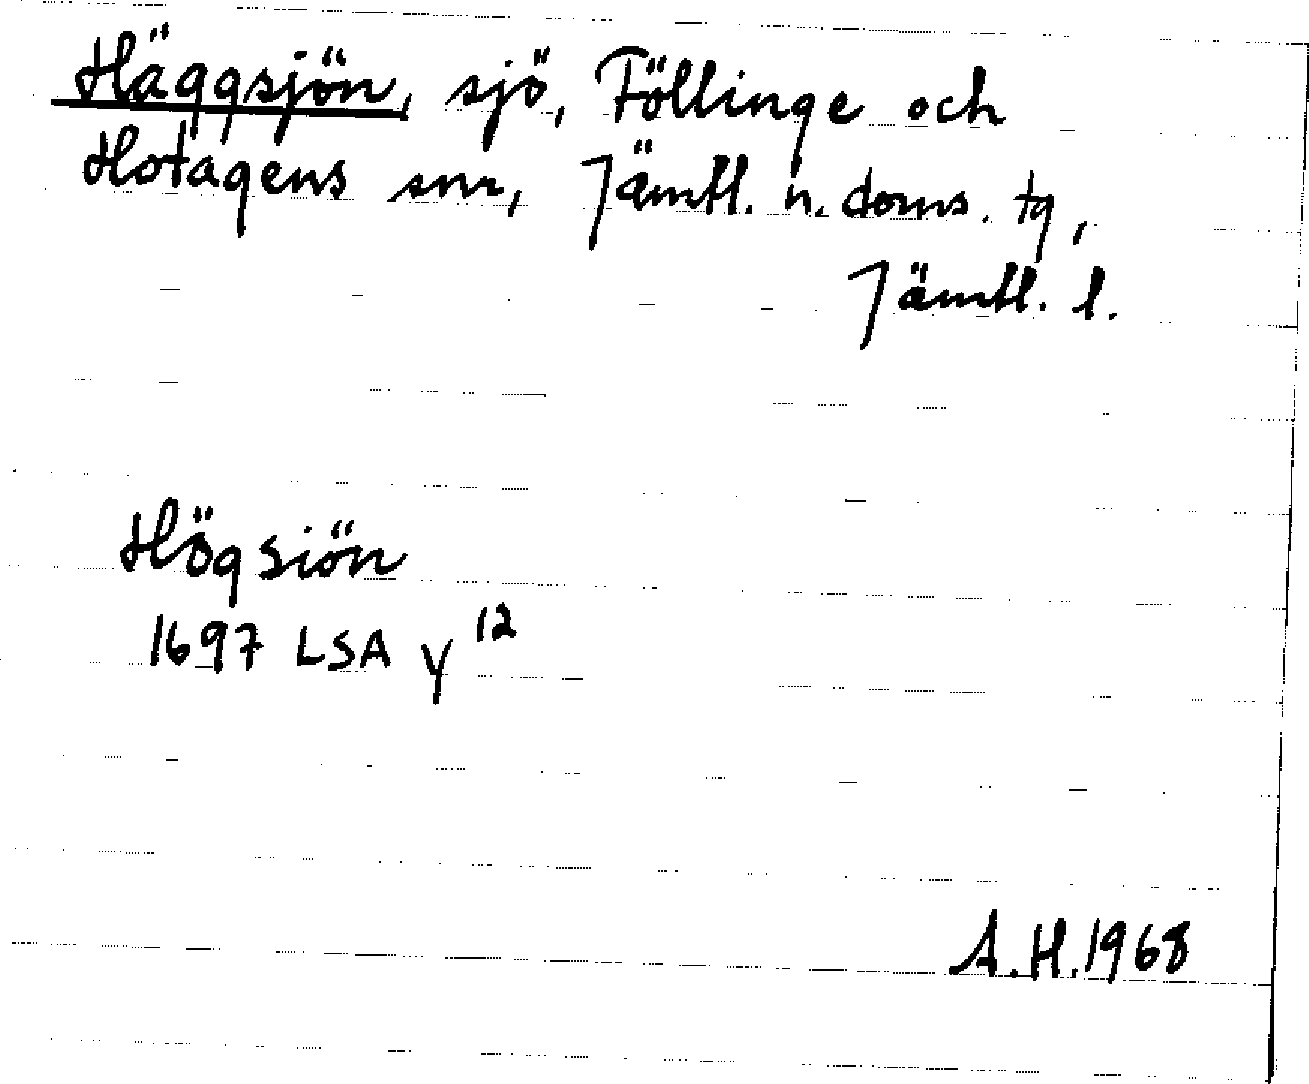 Häggsjön, sjö, Föllinge och
Hotagens snr, Jämtl. n. doms. tg,
Jämtl. l.
Högsiön
1697 LSA Y 12
A.H. 1968